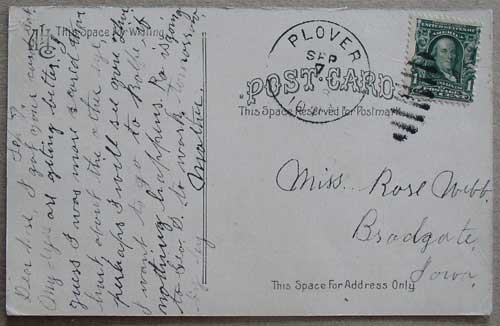 This Space For Writing
PLOVER
SEP
7
POST CARD
This Space Reserved for Postmark
1
Sep 7
Dear Rose, I got your card
My eyes are getting better. I
guess I was more scared than
hurt about the other eye.
perhaps I will see you
I want to go to Rolfe if
nothing happens. Pa is going
to Geo. D. to work tomorrow.
Mattie.
Miss. Rose Webb.
Bradgate,
Iowa.
This Space For Address Only